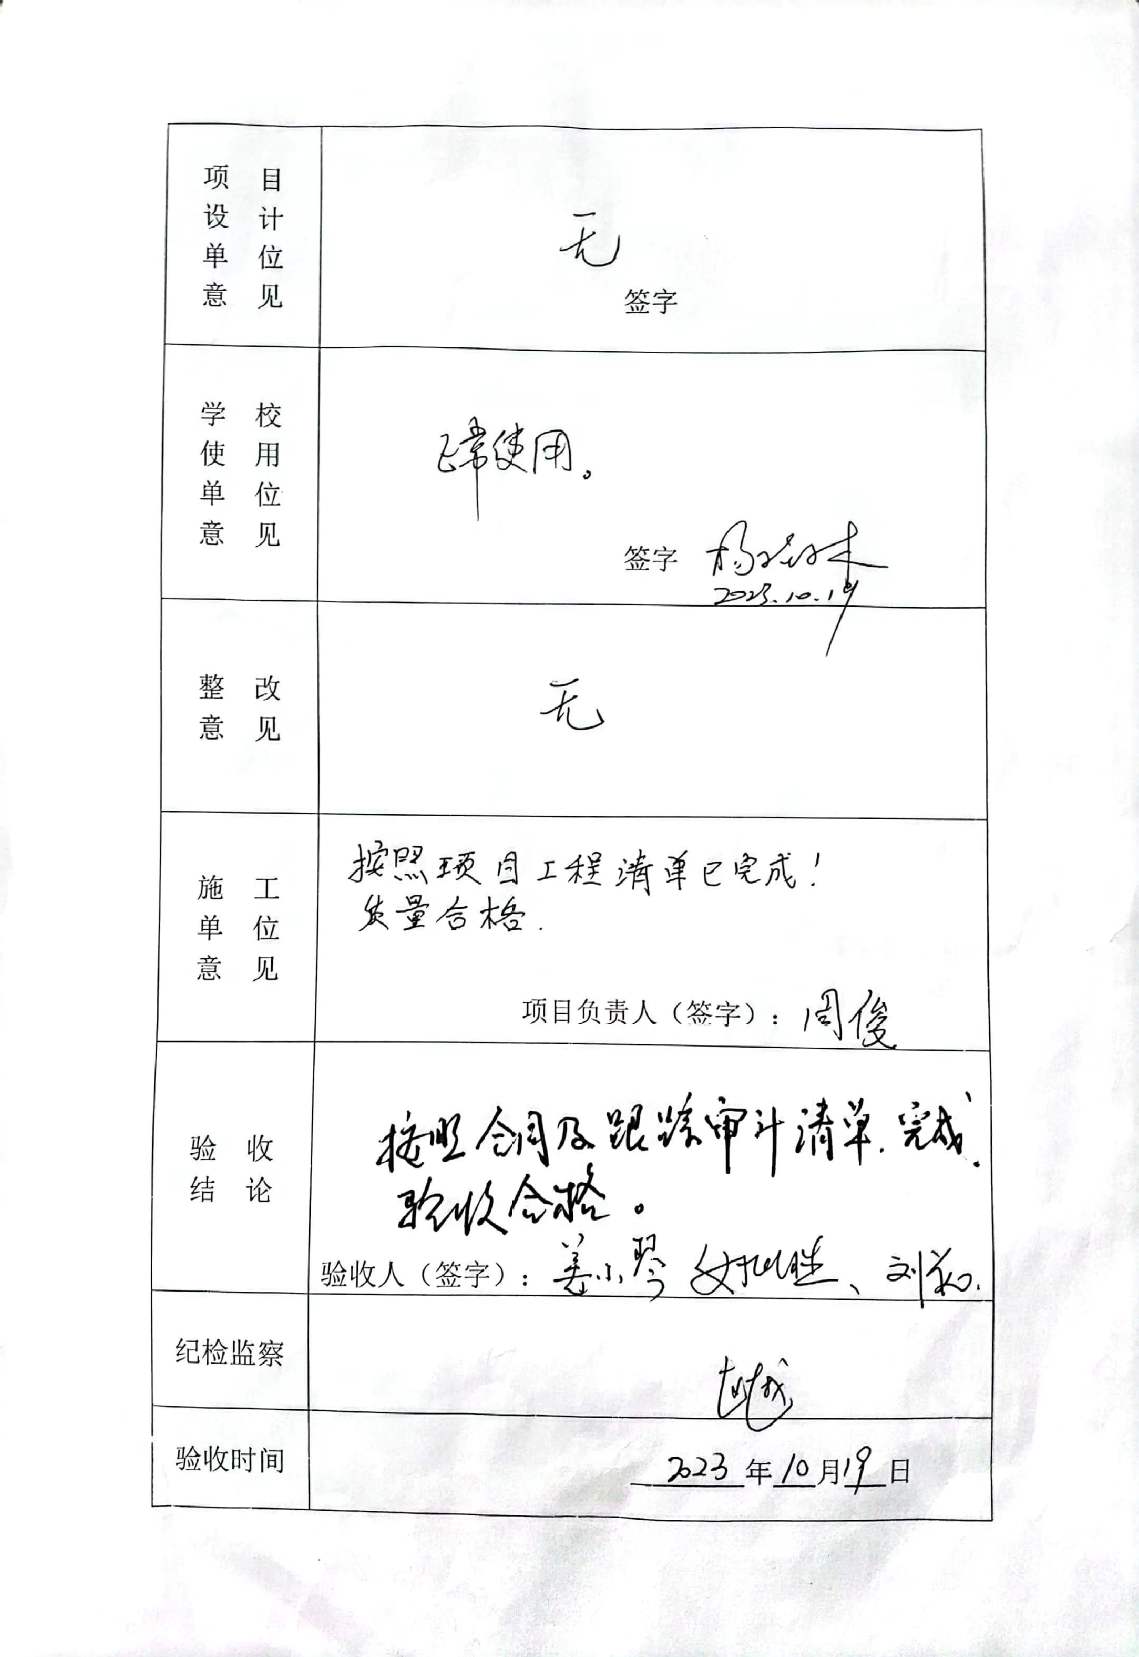 项目
设计
单位
意见
无
签字
学校
使用
单位
意见
正常使用。
签字
2023.10.19
整改
意见
无
施工
单位
意见
按照项目工程清单已完成！
质量合格.
项目负责人（签字）：周俊
验收
结论
按照合同及跟踪审计清单.完成.
验收合格。
验收人（签字）：姜小琴
纪检监察
验收时间
2023年10月19日